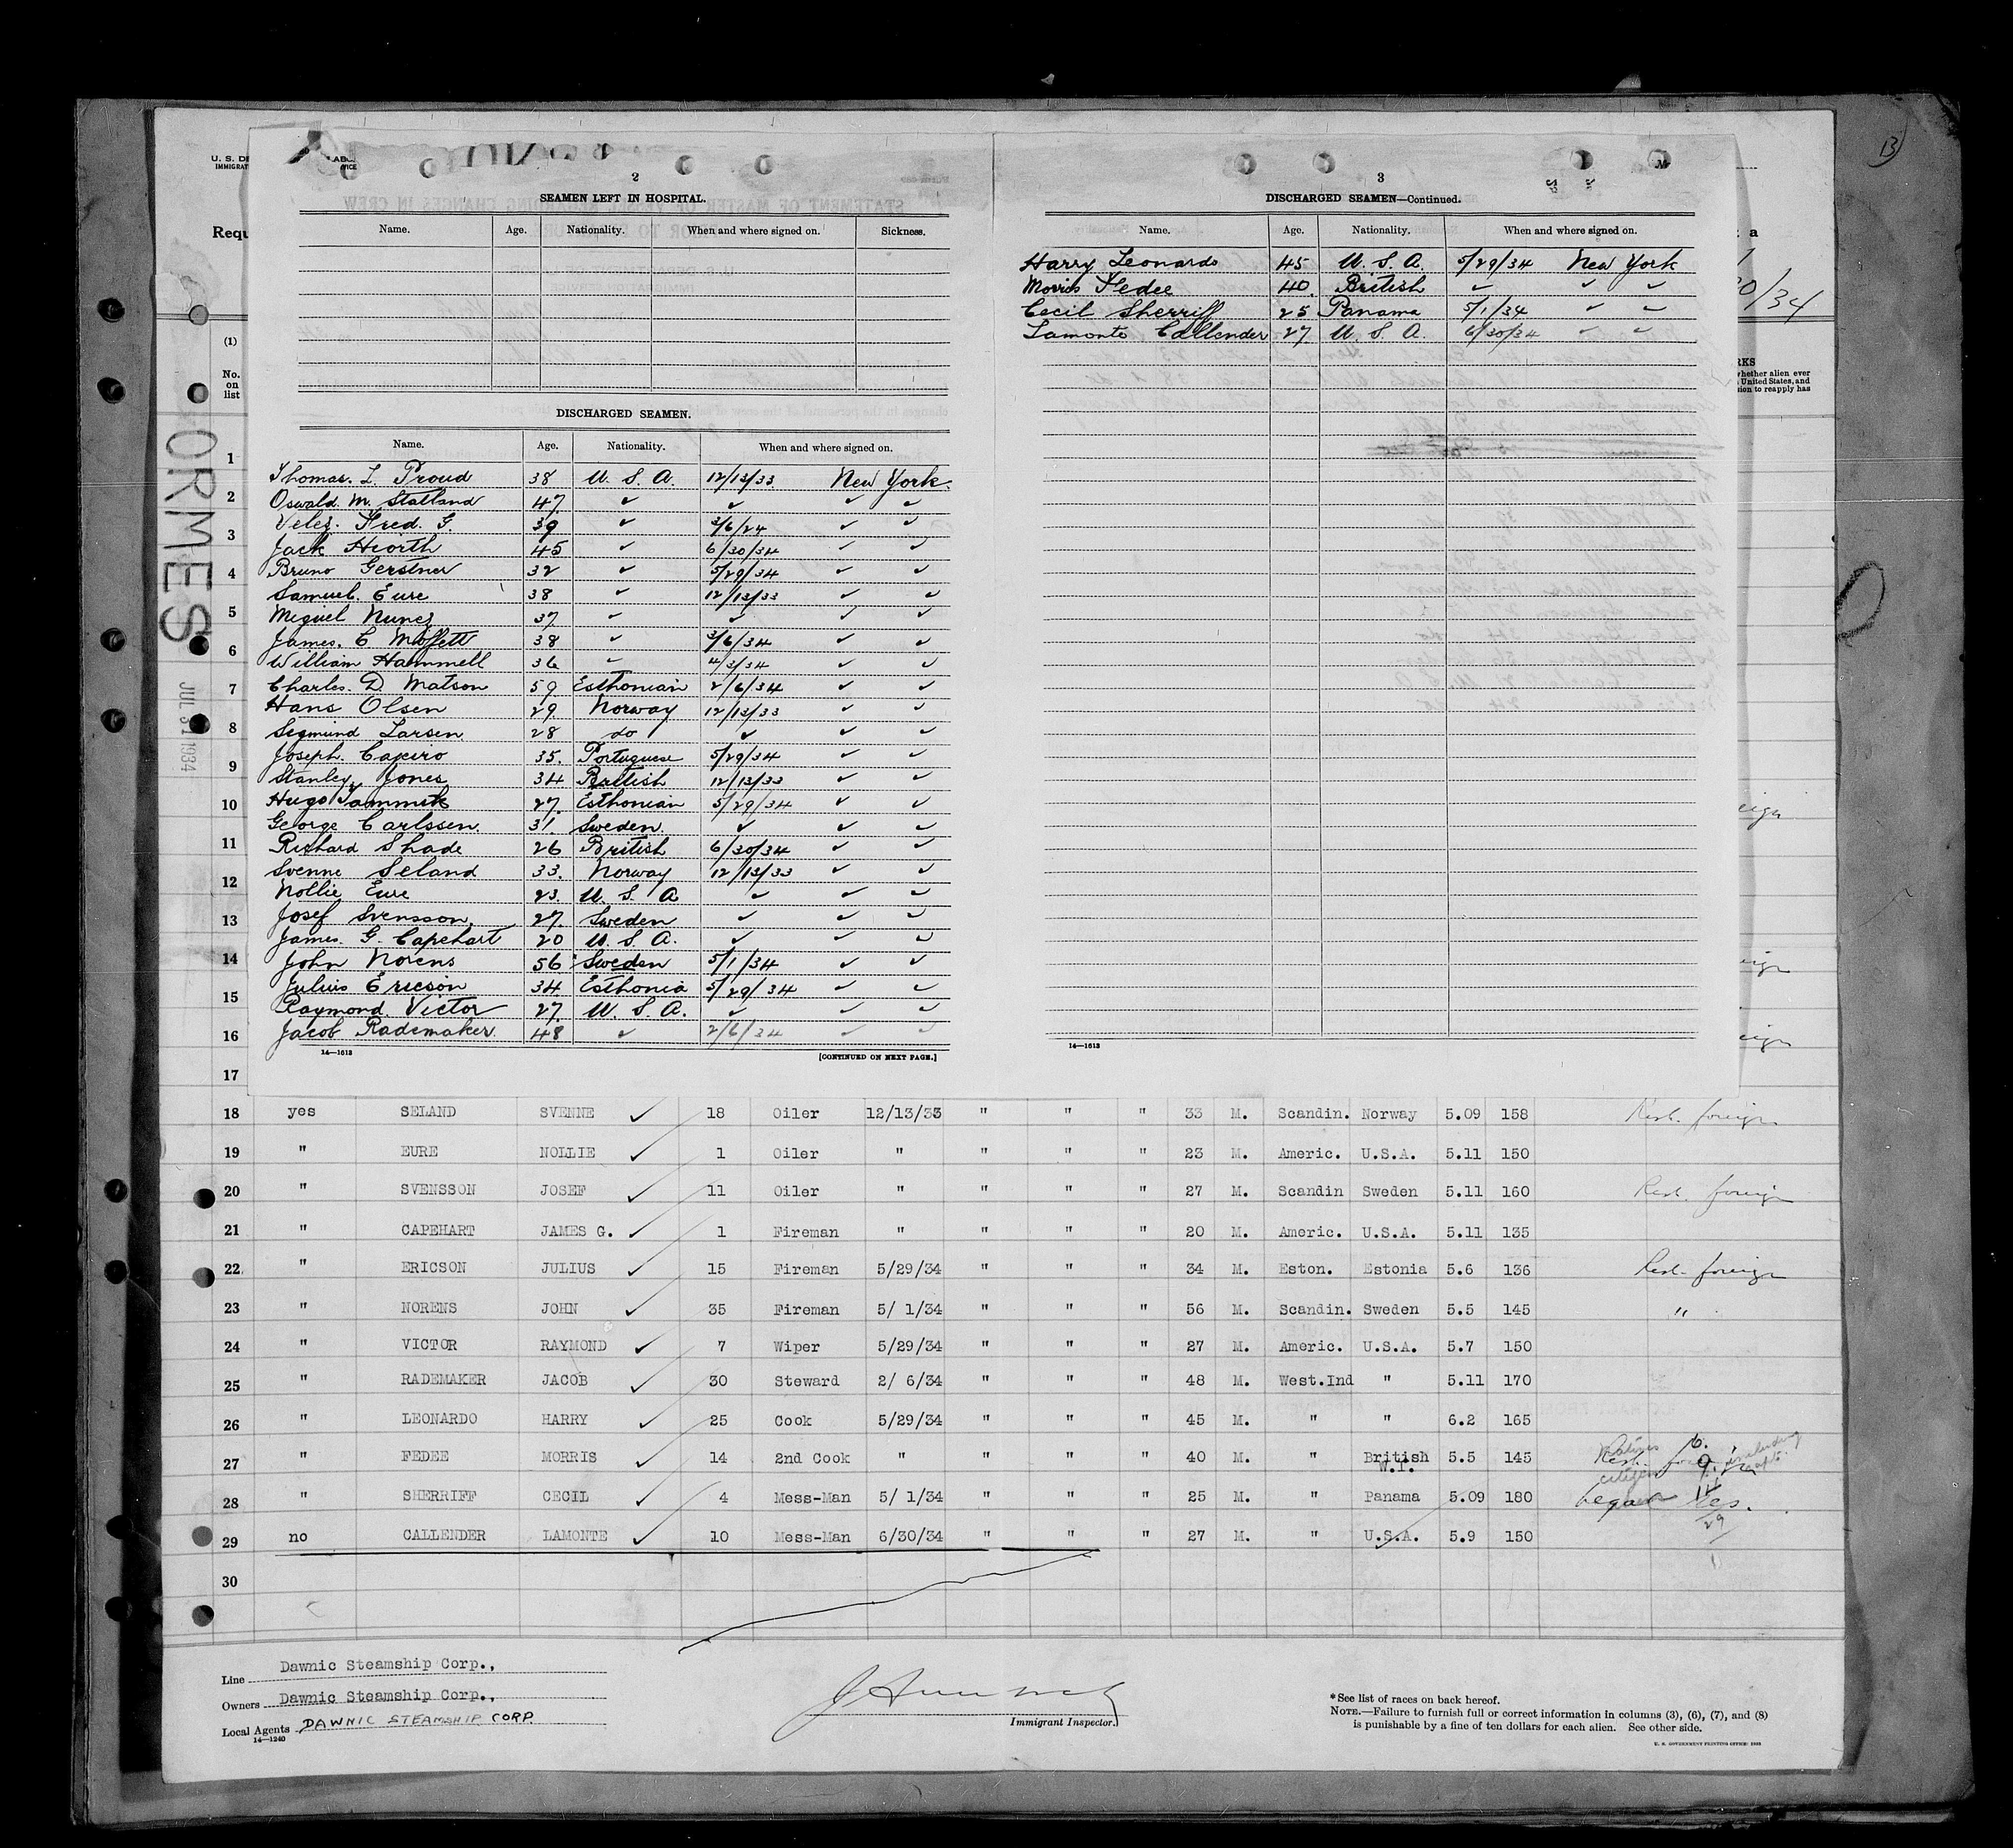 13
U. S. DE
LABO
IMMIGRAT
VICE
Requ
(1)
No.
on
list
ORMES
JUL 31 1934
2
SEAMEN LEFT IN HOSPITAL.
Name. Age. Nationality. When and where signed on. Sickness.
DISCHARGED SEAMEN.
Name. Age. Nationality. When and where signed on.
Thomas. L. Proud 38 U. S. A. 12/13/33 New York.
Oswald. M. Statland 47. ✓ ✓ ✓ ✓
Velez. Fred. G. 39 ✓ 3/6/24 ✓ ✓
Jack Hiorth 45 ✓ 6/30/34 ✓ ✓
Bruno Gerstner 32 ✓ 5/29/34 ✓ ✓
Samuel. Eure 38 ✓ 12/13/33 ✓ ✓
Miguel Nunez 37 ✓ ✓ ✓ ✓
James. C Moffett 38 ✓ 3/6/34 ✓ ✓
William Hammell 36 ✓ 4/3/34 ✓ ✓
Charles. D. Matson 59 Esthonian 2/6/34 ✓ ✓
Hans Olsen 29. Norway 12/13/33 ✓ ✓
Sigmund Larsen 28 do ✓ ✓ ✓
Joseph. Capeiro 35. Portuguese 5/29/34 ✓ ✓
Stanley Jones 34 British 12/13/33 ✓ ✓
Hugo Tammik 27. Esthonian 5/29/34 ✓ ✓
George Carlssen. 31. Sweden. ✓ ✓ ✓
Richard Shade 26 British 6/30/34 ✓ ✓
Svenne Seland 33. Norway 12/13/33 ✓ ✓
Nollie Eure 23. U. S. A ✓ ✓ ✓
Josef Svensson. 27. Sweden ✓ ✓ ✓
James. G. Capehart 20 U. S. A. ✓ ✓ ✓
John Norens 56 Sweden 5/1/34 ✓ ✓
Julius Ericson 34 Esthonia 5/29/34 ✓ ✓
Raymond Victor 27. U. S. A. ✓ ✓ ✓
Jacob Rademaker. 48 ✓ 2/6/34 ✓ ✓
14—1613 [CONTINUED ON NEXT PAGE.]
3
DISCHARGED SEAMEN—Continued.
Name. Age. Nationality. When and where signed on.
Harry Leonardo 45 U. S. A. 5/29/34 New York
Morris Fedee 40 British ✓ ✓ ✓
Cecil Sherriff 25 Panama 5/1/34 ✓ ✓
Lamonte Callender 27 U. S. A. 6/30/34 ✓ ✓
14—1613
a
30/34
RKS
whether alien ever
United States, and
sion to reapply has
1
2
3
4
5
6
7
8
9
10
11
12
13
14
15
16
17
18 yes SELAND SVENNE ✓ 18 Oiler 12/13/33 " " " 33 M. Scandin. Norway 5.09 158 Resh. foreign
19 " EURE NOLLIE ✓ 1 Oiler " " " " 23 M. Americ. U.S.A. 5.11 150
20 " SVENSSON JOSEF ✓ 11 Oiler " " " " 27 M. Scandin Sweden 5.11 160 Resh. foreign
21 " CAPEHART JAMES G. ✓ 1 Fireman " " " " 20 M. Americ. U.S.A. 5.11 135
22 " ERICSON JULIUS ✓ 15 Fireman 5/29/34 " " " 34 M. Eston. Estonia 5.6 136 Resh. foreign
23 " NORENS JOHN ✓ 35 Fireman 5/ 1/34 " " " 56 M. Scandin. Sweden 5.5 145 "
24 " VICTOR RAYMOND ✓ 7 Wiper 5/29/34 " " " 27 M. Americ. U.S.A. 5.7 150
25 " RADEMAKER JACOB ✓ 30 Steward 2/ 6/34 " " " 48 M. West.Ind " 5.11 170
26 " LEONARDO HARRY ✓ 25 Cook 5/29/34 " " " 45 M. " " 6.2 165
27 " FEDEE MORRIS ✓ 14 2nd Cook " " " " 40 M. " British W.I. 5.5 145
28 " SHERRIFF CECIL ✓ 4 Mess-Man 5/ 1/34 " " " 25 M. " Panama 5.09 180 Legal Res.
29 no CALLENDER LAMONTE ✓ 10 Mess-Man 6/30/34 " " " 27 M. " U.S.A. 5.9 150
30
Line Dawnic Steamship Corp.,
Owners Dawnic Steamship Corp.,
Local Agents DAWNIC STEAMSHIP CORP.
14—1240
Immigrant Inspector.
*See list of races on back hereof.
NOTE.—Failure to furnish full or correct information in columns (3), (6), (7), and (8)
is punishable by a fine of ten dollars for each alien. See other side.
U. S. GOVERNMENT PRINTING OFFICE: 1933